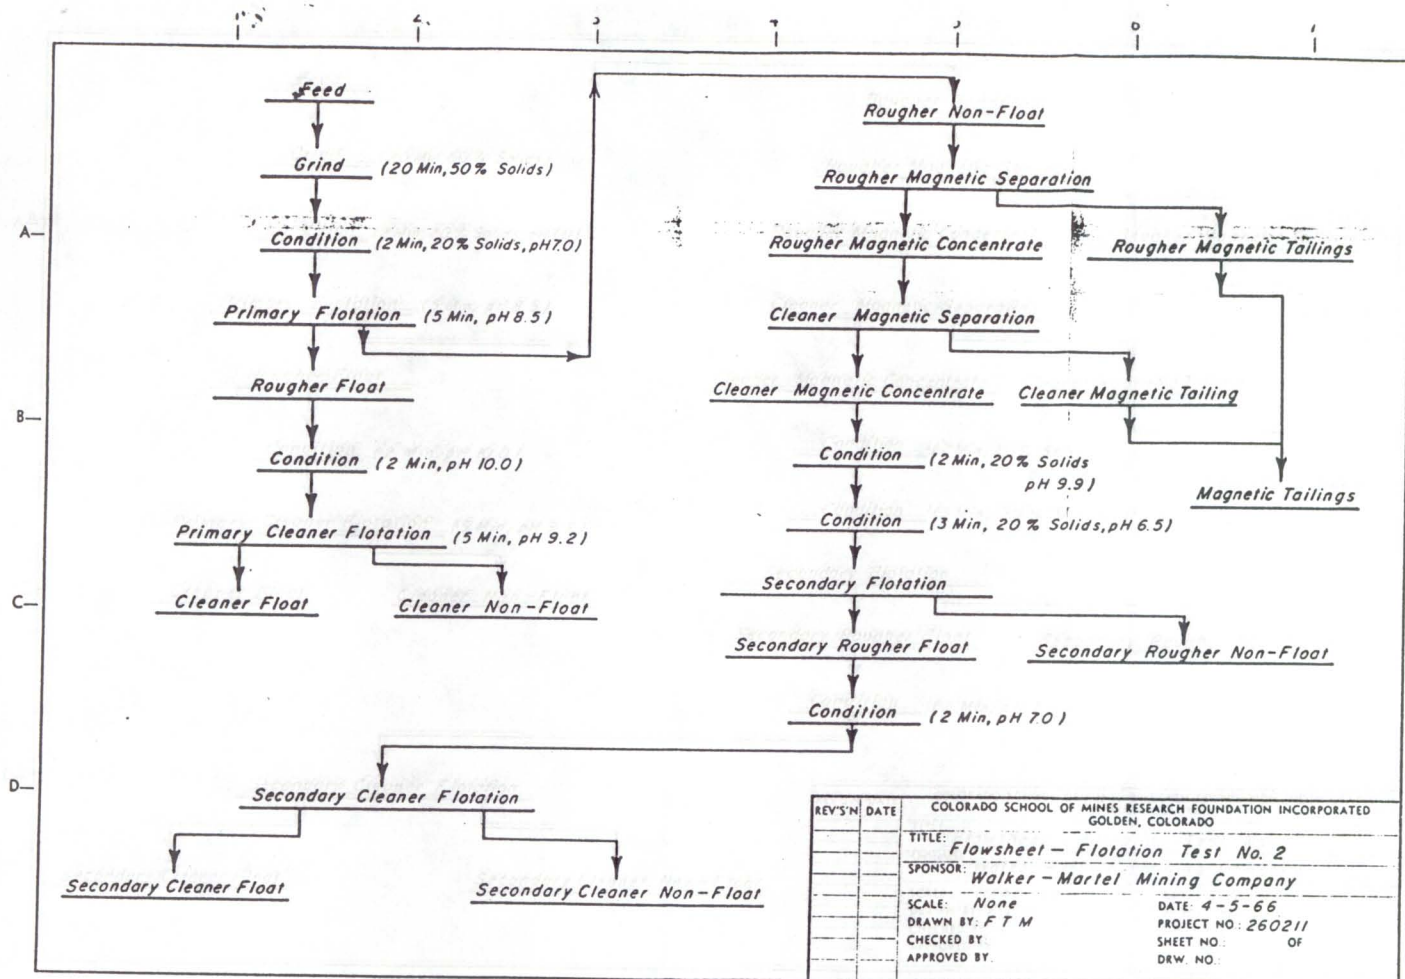 Feed
Grind (20 Min, 50% Solids)
Condition (2 Min, 20% Solids, pH 7.0)
Primary Flotation (5 Min, pH 8.5)
Rougher Float
Condition (2 Min, pH 10.0)
Primary Cleaner Flotation (5 Min, pH 9.2)
Cleaner Float
Cleaner Non-Float
Rougher Non-Float
Rougher Magnetic Separation
Rougher Magnetic Concentrate
Rougher Magnetic Tailings
Cleaner Magnetic Separation
Cleaner Magnetic Concentrate
Cleaner Magnetic Tailing
Condition (2 Min, 20% Solids
pH 9.9)
Magnetic Tailings
Condition (3 Min, 20% Solids, pH 6.5)
Secondary Flotation
Secondary Rougher Float
Secondary Rougher Non-Float
Condition (2 Min, pH 7.0)
Secondary Cleaner Flotation
Secondary Cleaner Float
Secondary Cleaner Non-Float
A
B
C
D
REV'S'N DATE
COLORADO SCHOOL OF MINES RESEARCH FOUNDATION INCORPORATED
GOLDEN, COLORADO
TITLE: Flowsheet - Flotation Test No. 2
SPONSOR: Walker-Martel Mining Company
SCALE: None DATE: 4-5-66
DRAWN BY: F T M PROJECT NO.: 260211
CHECKED BY: SHEET NO.: OF
APPROVED BY: DRW. NO.: